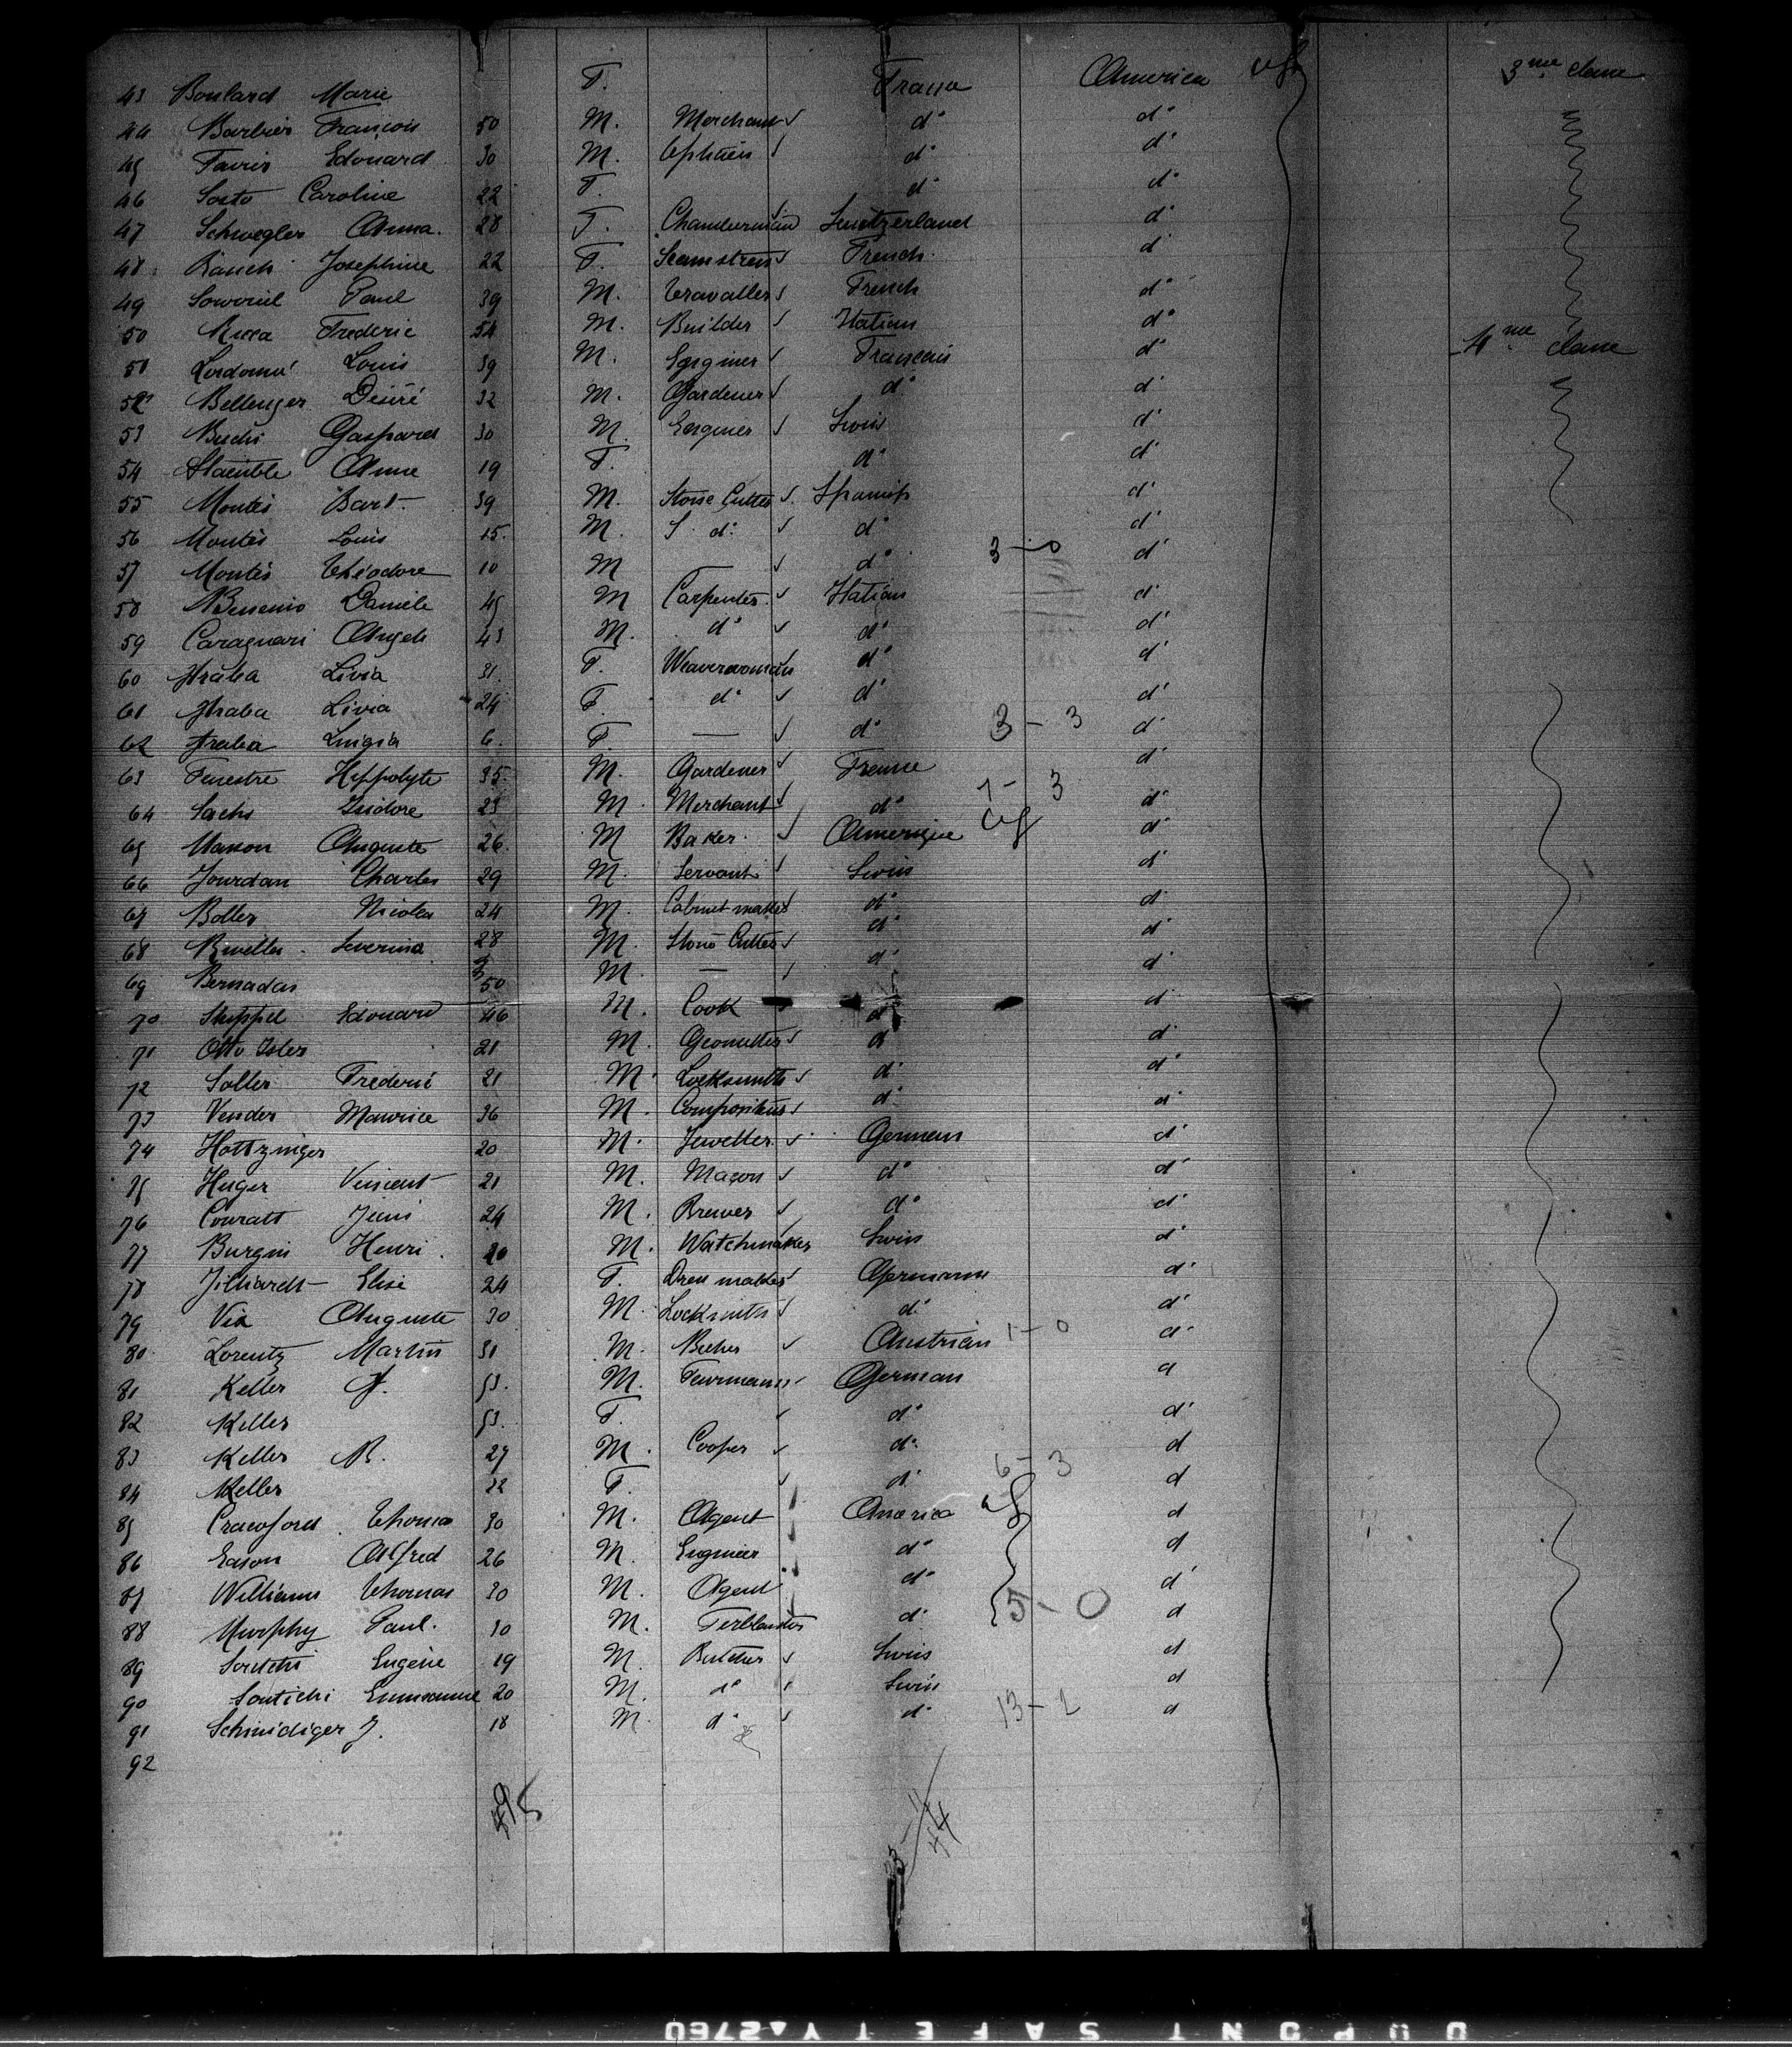 43 Boulard Marie F. France America 3me classe
44 Barbier François 50 M. Merchant d° d°
45 Favier Edouard 30 M. d° d°
46 Soeto Caroline 22 F. d° d°
47 Schwegler Anna. 28 F. Chambermaid Switzerland d°
48 Rauch Josephine 22 F. Seamstress French d°
49 Paul 39 M. Travaller French d°
50 Ricca Frederic 54 M. Builder Italian d° 4me classe
51 Louis 39 M. Enginer Français d°
52 Bellenger Désiré 32 M. Gardener d° d°
53 Buchi Gaspard 30 M. Enginer Swiss d°
54 Staeuble Anne 19 F. d° d°
55 Montès Bart. 39 M. Stone Cutter Spanish d°
56 Montès Louis 15. M. S. d° d° d°
57 Montès Théodore 10 M d° 3-0 d°
58 Danièle 45 M Carpenter Italian d°
59 Angelo 43 M. d° d° d°
60 Livia 31. F. Weaverwoman d° d°
61 Livia 24 F. d° d° d°
62 Luigia 6. F. — d° 3-3 d°
63 Fenestre Hippolyte 35. M. Gardener France d°
64 Sachs Isidore 23 M. Merchant d° 1-3 d°
65 Masson Auguste 26. M Baker. Amerique d°
66 Jourdan Charles 29 M. Servant Swiss d°
67 Boller Nicolas 24 M. Cabinet maker d° d°
68 Severino 28 M. Stone Cutter d° d°
69 Bernadas 50 M. — d° d°
70 Edouard 46 M. Cook d° d°
71 Otto Isler 21 M. Geometter d° d°
72 Soller Frederic 21 M. Locksmith d° d°
73 Vender Maurice 36 M. Compositeur d° d°
74 Holtzinger 20 M. Jeweller German d°
75 Huger Vincent 21 M. Maçon d° d°
76 Couratt 24 M. Brewer d° d°
77 Burgin Henri. 20 M. Watchmaker Swiss d°
78 Elise 24 F. Dress maker Germann d°
79 Vix Auguste 30 M. Locksmith d° d°
80 Lorentz Martin 31 M. Austrian 1-0 d°
81 Keller J. 53. M. German d
82 Keller 53. F. d° d°
83 Keller B. 27 M. Cooper d° d
84 Keller 22 F. d° 6-3 d
85 Crawford Thomas 30 M. Agent America d
86 Eason Alfred 26 M. Engineer d° d
87 Williams Thomas 30 M. Agent d° d°
88 Murphy Paul. 30 M. d° 5-0 d
89 Eugène 19 M. Butcher Swiss d
90 20 M. d° Swiss d
91 Schmidiger J. 18 M. d° d° 13-2 d
92
DUPONT SAFETY 2760